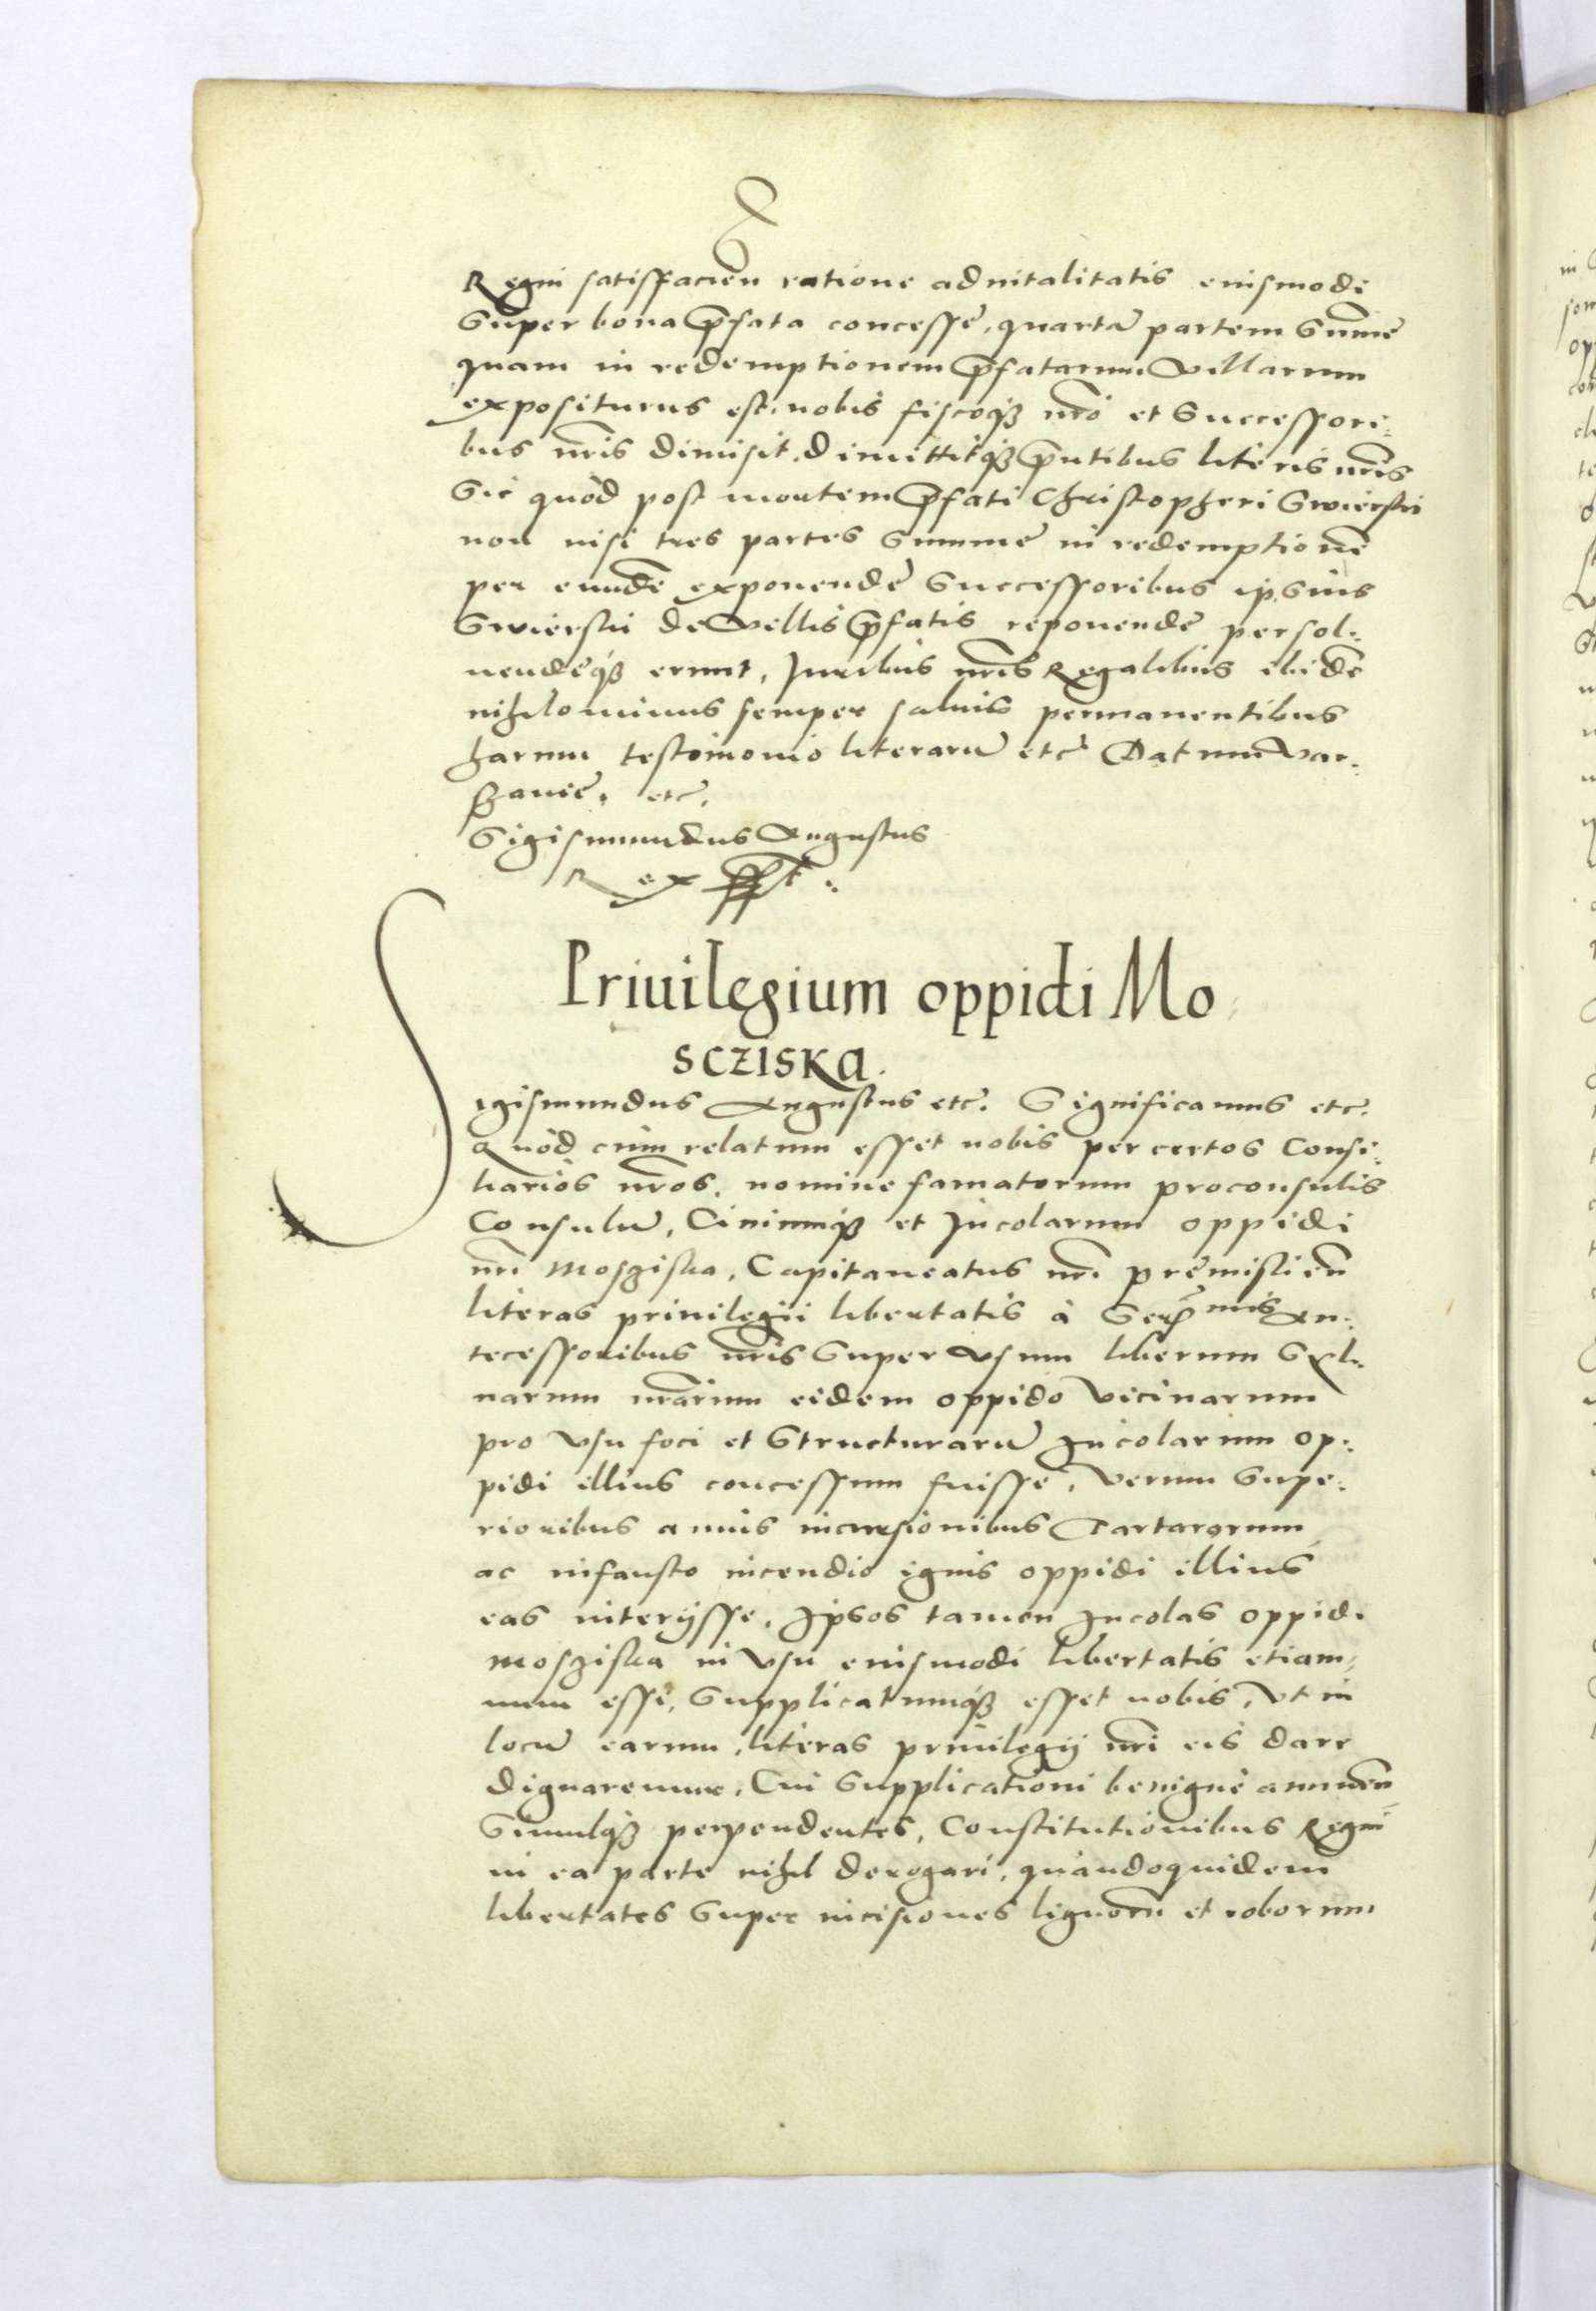 Regni satisfacien̄ ratione aduitalitatis eiusmodi
super bona p̄fata concessę, quartā partem sum̄ę
quam in redemptionem p̄fatarum villarum
expositurus est, nobis fiscoq̨ nr̄o et successori:
bus nr̄is dimisit, dimittitq̨ p̄ntibus literis nr̄is
sic quòd post mortem p̄fati Christopheri Swierski
non nisi tres partes summę in redemptionē
per eundē exponendę successoribus ipsius
Swierski de villis p̄fatis reponendę persol:
uendęq̨ erunt, Juribus nr̄is Regalibus ibidē
nihilominus semper saluis permanentibus
harum testimonio literarū etc̄ Datum Var:
szauię, etc̄.
Sigismundus Augustus
Rex sspt:
Priuilegium oppidi Mo
scziska.
Sigismundus Augustus etc̄. Significamus etc̄.
Quòd cùm relatum esset nobis per certos Consi:
liarios nr̄os, nomine famatorum proconsulis
Consulū, Ciuiumq̨ et Incolarum oppidi
nr̄i Mosziska, Capitaneatus nr̄i premislien̄
literas priuilegii libertatis à Ser̄mis An:
tecessoribus nr̄is super vsum liberum Syl:
uarum nr̄arum eidem oppido vicinarum
pro vsu foci et structurarū Incolarum op:
pidi illius concessum fuisse, verum supe:
rioribus annis incursionibus Tartarorum
ac infausto incendio ignis oppidi illius
eas interijsse, Ipsos tamen Incolas oppidi
Mosziska in vsu eiusmodi libertatis etiam
num esse, supplicatumq̨ esset nobis, vt in
locū earum, literas priuilegij nr̄i eis dare
dignaremur, Cui supplicationi benignè annuen̄
simulq̨ perpendentes, Constitutionibus Regni
in ea parte nihil derogari, quandoquidem
libertates super incisiones lignorū et roborum